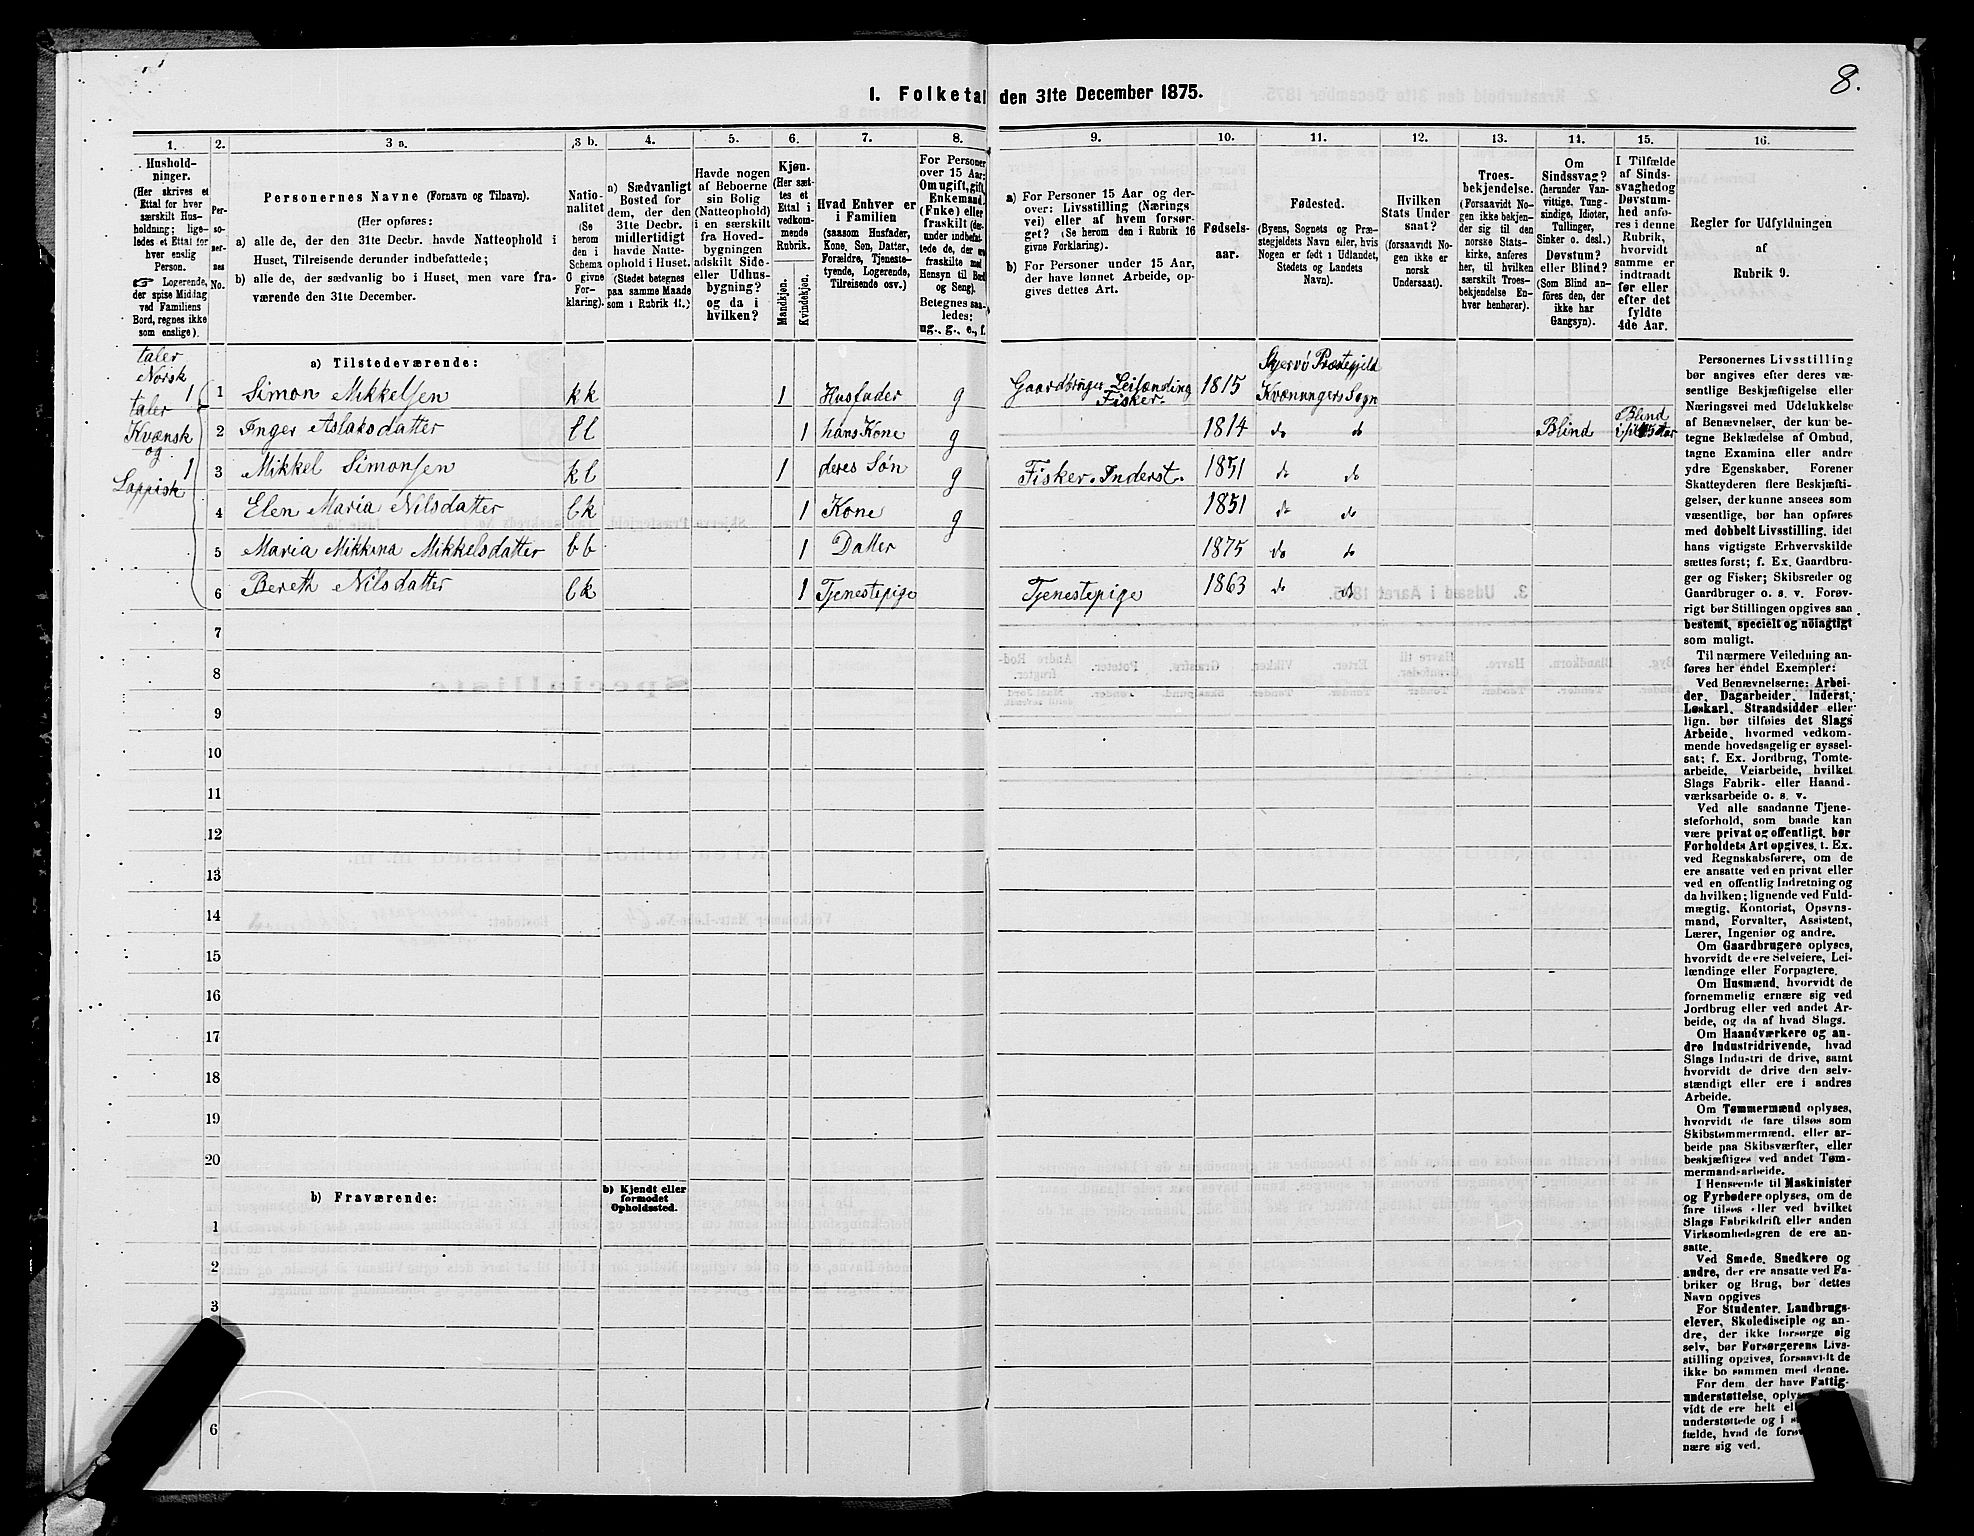 8.
1. Folketal den 31te December 1875.
1. 2. 3 a. 3 b. 4. 5. 6. 7. 8. 9. 10. 11. 12. 13. 14. 15. 16.
Hushold-
ninger.
(Her skrives et
Ettal for hver
særskilt Hus-
holdning; lige-
ledes et Ettal for
hver enslig
Person.
☞ Logerende,
der spise Middag
ved Familiens
Bord, regnes ikke
som enslige).
Per-
so-
ner-
nes
No.
Personernes Navne (Fornavn og Tilnavn).
(Her opføres:
a) alle de, der den 31te Decbr. havde Natteophold i
Huset, Tilreisende derunder indbefattede;
b) alle de, der sædvanlig bo i Huset, men vare fra-
værende den 31te December.
Natio-
nalitet
(Se
herom
den i
Schema
G givne
For-
klaring).
a) Sædvanligt
Bosted for
dem, der den
31te Decbr.
midlertidigt
havde Natte-
ophold i Huset.
(Stedet betegnes
paa samme Maade
som i Rubrik 11.)
Havde nogen
af Beboerne
sin Bolig
(Natteophold)
i en særskilt
fra Hoved-
bygningen
adskilt Side-
eller Udhus-
bygning?
og da i
hvilken?
Kjøn.
(Her sæt-
tes et
Ettal i
vedkom-
mende
Rubrik.
Mandkjøn.
Kvindekjøn.
Hvad Enhver er
i Familien
(saasom Husfader,
Kone, Søn, Datter,
Forældre, Tjeneste-
tyende, Logerende,
Tilreisende osv.)
For Personer
over 15 Aar:
Om ugift, gift,
Enkemand
(Enke) eller
fraskilt
Betegnes saa-
ledes:
ug., g., e., f.
a) For Personer 15 Aar og der-
over: Livsstilling (Nærings
vei) eller af hvem forsør-
get? (Se herom den i Rubrik 16
givne Forklaring).
b) For Personer under 15 Aar,
der have lønnet Arbeide, op-
gives dettes Art.
Fødsels-
aar.
Fødested.
(Byens, Sognets og Præ-
stegjeldets Navn eller, hvis
Nogen er født i Udlandet,
Stedets og Landets
Navn).
Hvilken
Stats Under
saat?
(forsaavidt No-
gen ikke er
norsk
Undersaat).
Troes-
bekjendelse.
(Forsaavidt No-
gen ikke bekjen-
der sig til den
norske Stats-
kirke, anføres
her, til hvilken
særskilt Troes-
bekjendelse En-
hver henhører).
Om
Sindssvag?
(herunder Van-
vittige, Tung-
sindige, Idioter,
Tullinger,
Sinker o. desl.)
Døvstum?
eller Blind?
(Som Blind an-
føres den, der
ikke har
Gangsyn).
I Tilfælde
af Sinds-
svaghed og
Døvstum-
hed anfø-
res i denne
Rubrik,
hvorvidt
samme er
indtraadt
før eller
efter det
fyldte
4de Aar.
Regler for Udfyldningen
af
Rubrik 9.
a) Tilstedeværende:
taler
Norsk
taler
Kvænsk
og
Lappisk
1 1 Simon Mikkelsen kk 1 Husfader g Gaardbruger Leilænding Fisker. 1815 Skjervö Præstegjeld Kvænangers Sogn
2 Inger Aslaksdatter ll 1 hans Kone g 1814 do do Blind Blind
1 3 Mikkel Simonsen kl 1 deres Søn g Fisker. Inderst. 1851 do do
4 Elen Maria Nilsdatter lk 1 Kone g 1851 do do
5 Maria Mikkina Mikkelsdatter bb 1 Datter 1875 do do
6 Bereth Nilsdatter lk 1 Tjenestepige Tjenestepige 1863 do do
7
8
9
10
11
12
13
14
15
16
17
18
19
20
b) Fraværende:
b) Kjendt eller
formodet
Opholdssted.
1
2
3
6
Personernes Livsstilling
bør angives efter deres væ-
sentlige Beskjæftigelse eller
Næringsvei med Udelukkelse
af Benævnelser, der kun be-
tegne Beklædelse af Ombud,
tagne Examina eller andre
ydre Egenskaber. Forener
Skatteyderen flere Beskjæfti-
gelser, der kunne ansees som
væsentlige, bør han opføres
med dobbelt Livsstilling, idet
hans vigtigste Erhvervskilde
sættes først; f. Ex. Gaardbru-
ger og Fisker; Skibsreder og
Gaardbruger o. s. v. Forøv-
rigt bør Stillingen opgives saa
bestemt, specielt og nöiagtigt
som muligt.
Til nærmere Veiledning an-
føres her endel Exempler:
Ved Benævnelserne: Arbei-
der, Dagarbeider, Inderst,
Løskarl, Strandsidder eller
lign. bør tilføies det Slags
Arbeide, hvormed vedkom-
mende hovedsagelig er syssel-
sat; f. Ex. Jordbrug, Tomte-
arbeide, Veiarbeide, hvilket
Slags Fabrik- eller Haand-
værksarbeide o. s. v.
Ved alle saadanne Tjene-
steforhold, som baade kan
være privat og offentligt, bør
Forholdets Art opgives, f. Ex.
ved Regnskabsførere, om de
ere ansatte ved en privat eller
ved en offentlig Indretning og
da hvilken; lignende ved Fuld-
mægtig, Kontorist, Opsyns-
mand, Forvalter, Assistent,
Lærer, Ingeniør og andre.
Om Gaardbrugere oplyses,
hvorvidt de ere Selveiere, Lei-
lændinge eller Forpagtere.
Om Husmænd, hvorvidt de
fornemmelig ernære sig ved
Jordbrug eller ved andet Ar-
beide, og da af hvad Slags.
Om Haandværkere og an-
dre Industridrivende, hvad
Slags Industri de drive, samt
hvorvidt de drive den selv-
stændigt eller ere i andres
Arbeide.
Om Tømmermænd oplyses,
hvorvidt de fare tilsøs som
Skibstømmermænd, eller ar-
beide paa Skibsværfter, eller
beskjæftiges ved andet Tøm-
mermandsarbeide.
I Henseende til Maskinister
og Fyrbødere oplyses, om de
fare tilsøs eller ved hvilket
Slags Fabrikdrift eller anden
Virksomhedsgren de ere an-
satte.
Ved Smede, Snedkere og
andre, der ere ansatte ved Fa-
briker og Brug, bør dettes
Navn opgives
For Studenter, Landbrugs-
elever, Skoledisciple og an-
dre, der ikke forsørge sig
selv, bør Forsørgerens Livs-
stilling opgives, forsaavidt de
ikke bo sammen med denne.
For dem, der have Fattig-
understøttelse, oplyses
vidt de ere helt
understøttede og i
fælde, hvad de
nære sig ved.